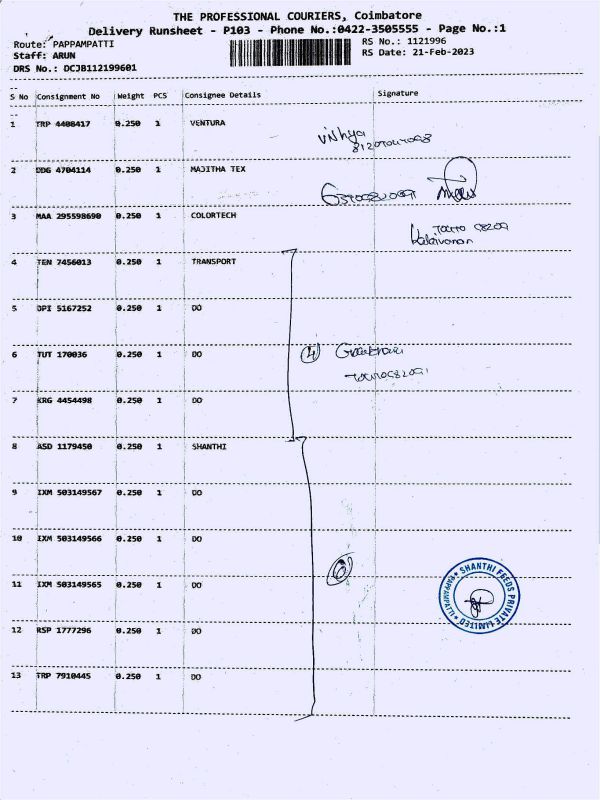 THE PROFESSIONAL COURIERS, Coimbatore
Delivery Runsheet - P103 - Phone No.:0422-3505555 - Page No.:1
Route: PAPPAMPATTI RS No.: 1121996
Staff: ARUN RS Date: 21-Feb-2023
DRS No.: DCJB112199601
S No Consignment No Weight PCS Consignee Details Signature
1 TRP 4408417 0.250 1 VENTURA
2 DDG 4704114 0.250 1 MAJITHA TEX
3 MAA 295598690 0.250 1 COLORTECH
Kalaivanan
4 TEN 7456013 0.250 1 TRANSPORT
5 DPI 5167252 0.250 1 DO
6 TUT 170036 0.250 1 DO
4
7 KRG 4454498 0.250 1 DO
8 ASD 1179450 0.250 1 SHANTHI
9 IXM 503149567 0.250 1 DO
10 IXM 503149566 0.250 1 DO
6
11 IXM 503149565 0.250 1 DO
SHANTHI FEEDS PRIVATE LIMITED
PAPPAMPATTI
12 RSP 1777296 0.250 1 DO
13 TRP 7910445 0.250 1 DO